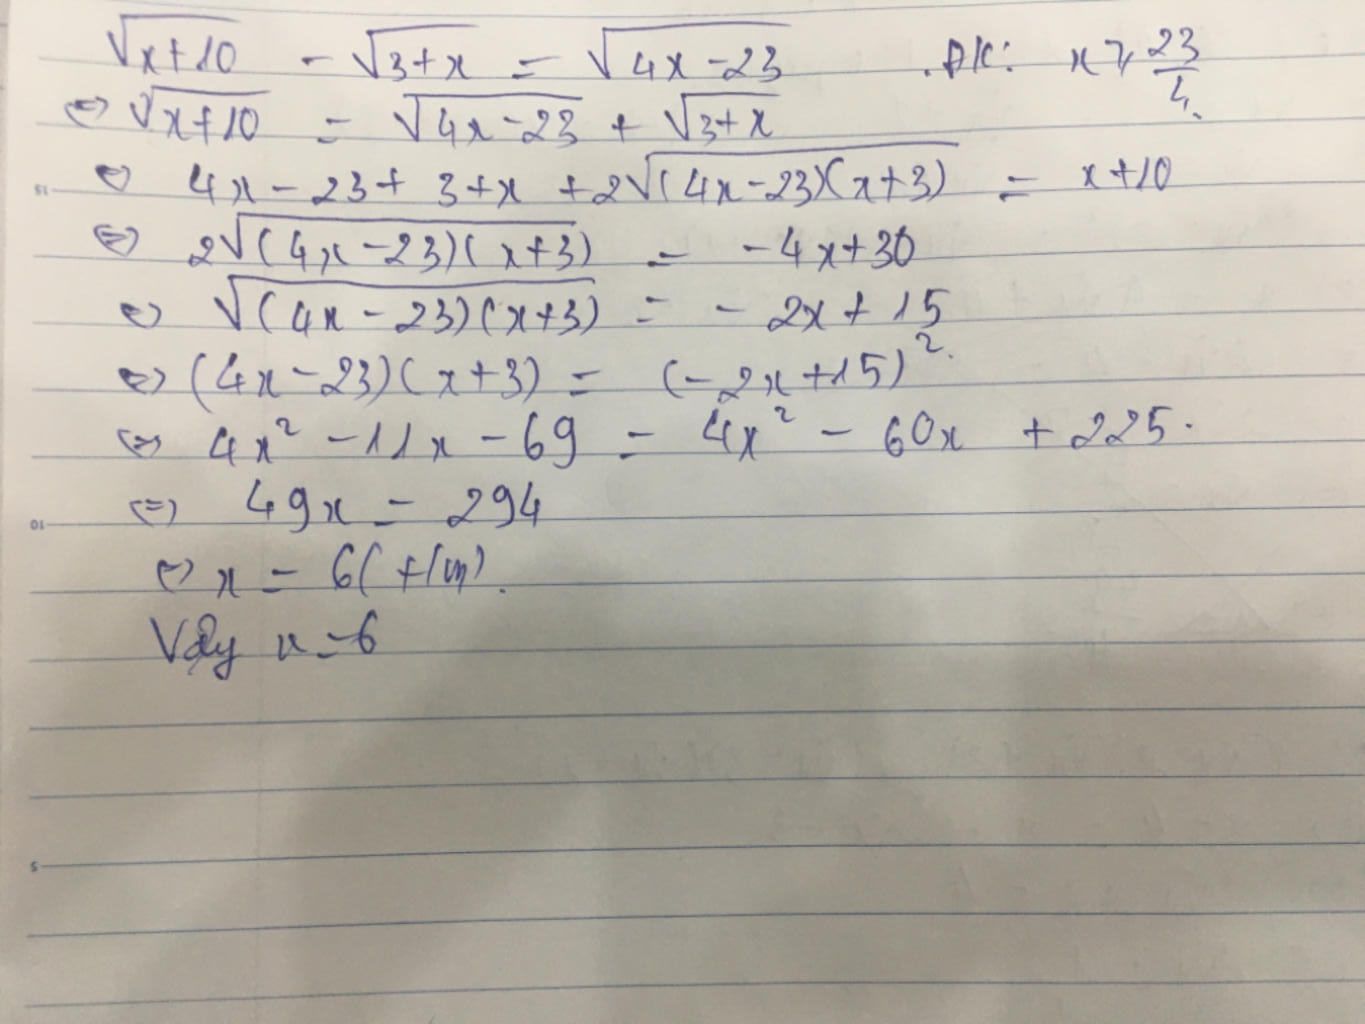 √(x+10) - √(3+x) = √(4x-23) . ĐK: x ≥ 23/4.
⇔ √(x+10) = √(4x-23) + √(3+x)
⇔ 4x - 23 + 3 + x + 2√((4x-23)(x+3)) = x+10
⇔ 2√((4x-23)(x+3)) = -4x+30
⇔ √((4x-23)(x+3)) = -2x+15
⇔ (4x-23)(x+3) = (-2x+15)².
⇔ 4x² - 11x - 69 = 4x² - 60x + 225.
⇔ 49x = 294
⇔ x = 6 (t/m).
Vậy x = 6
15
10
5